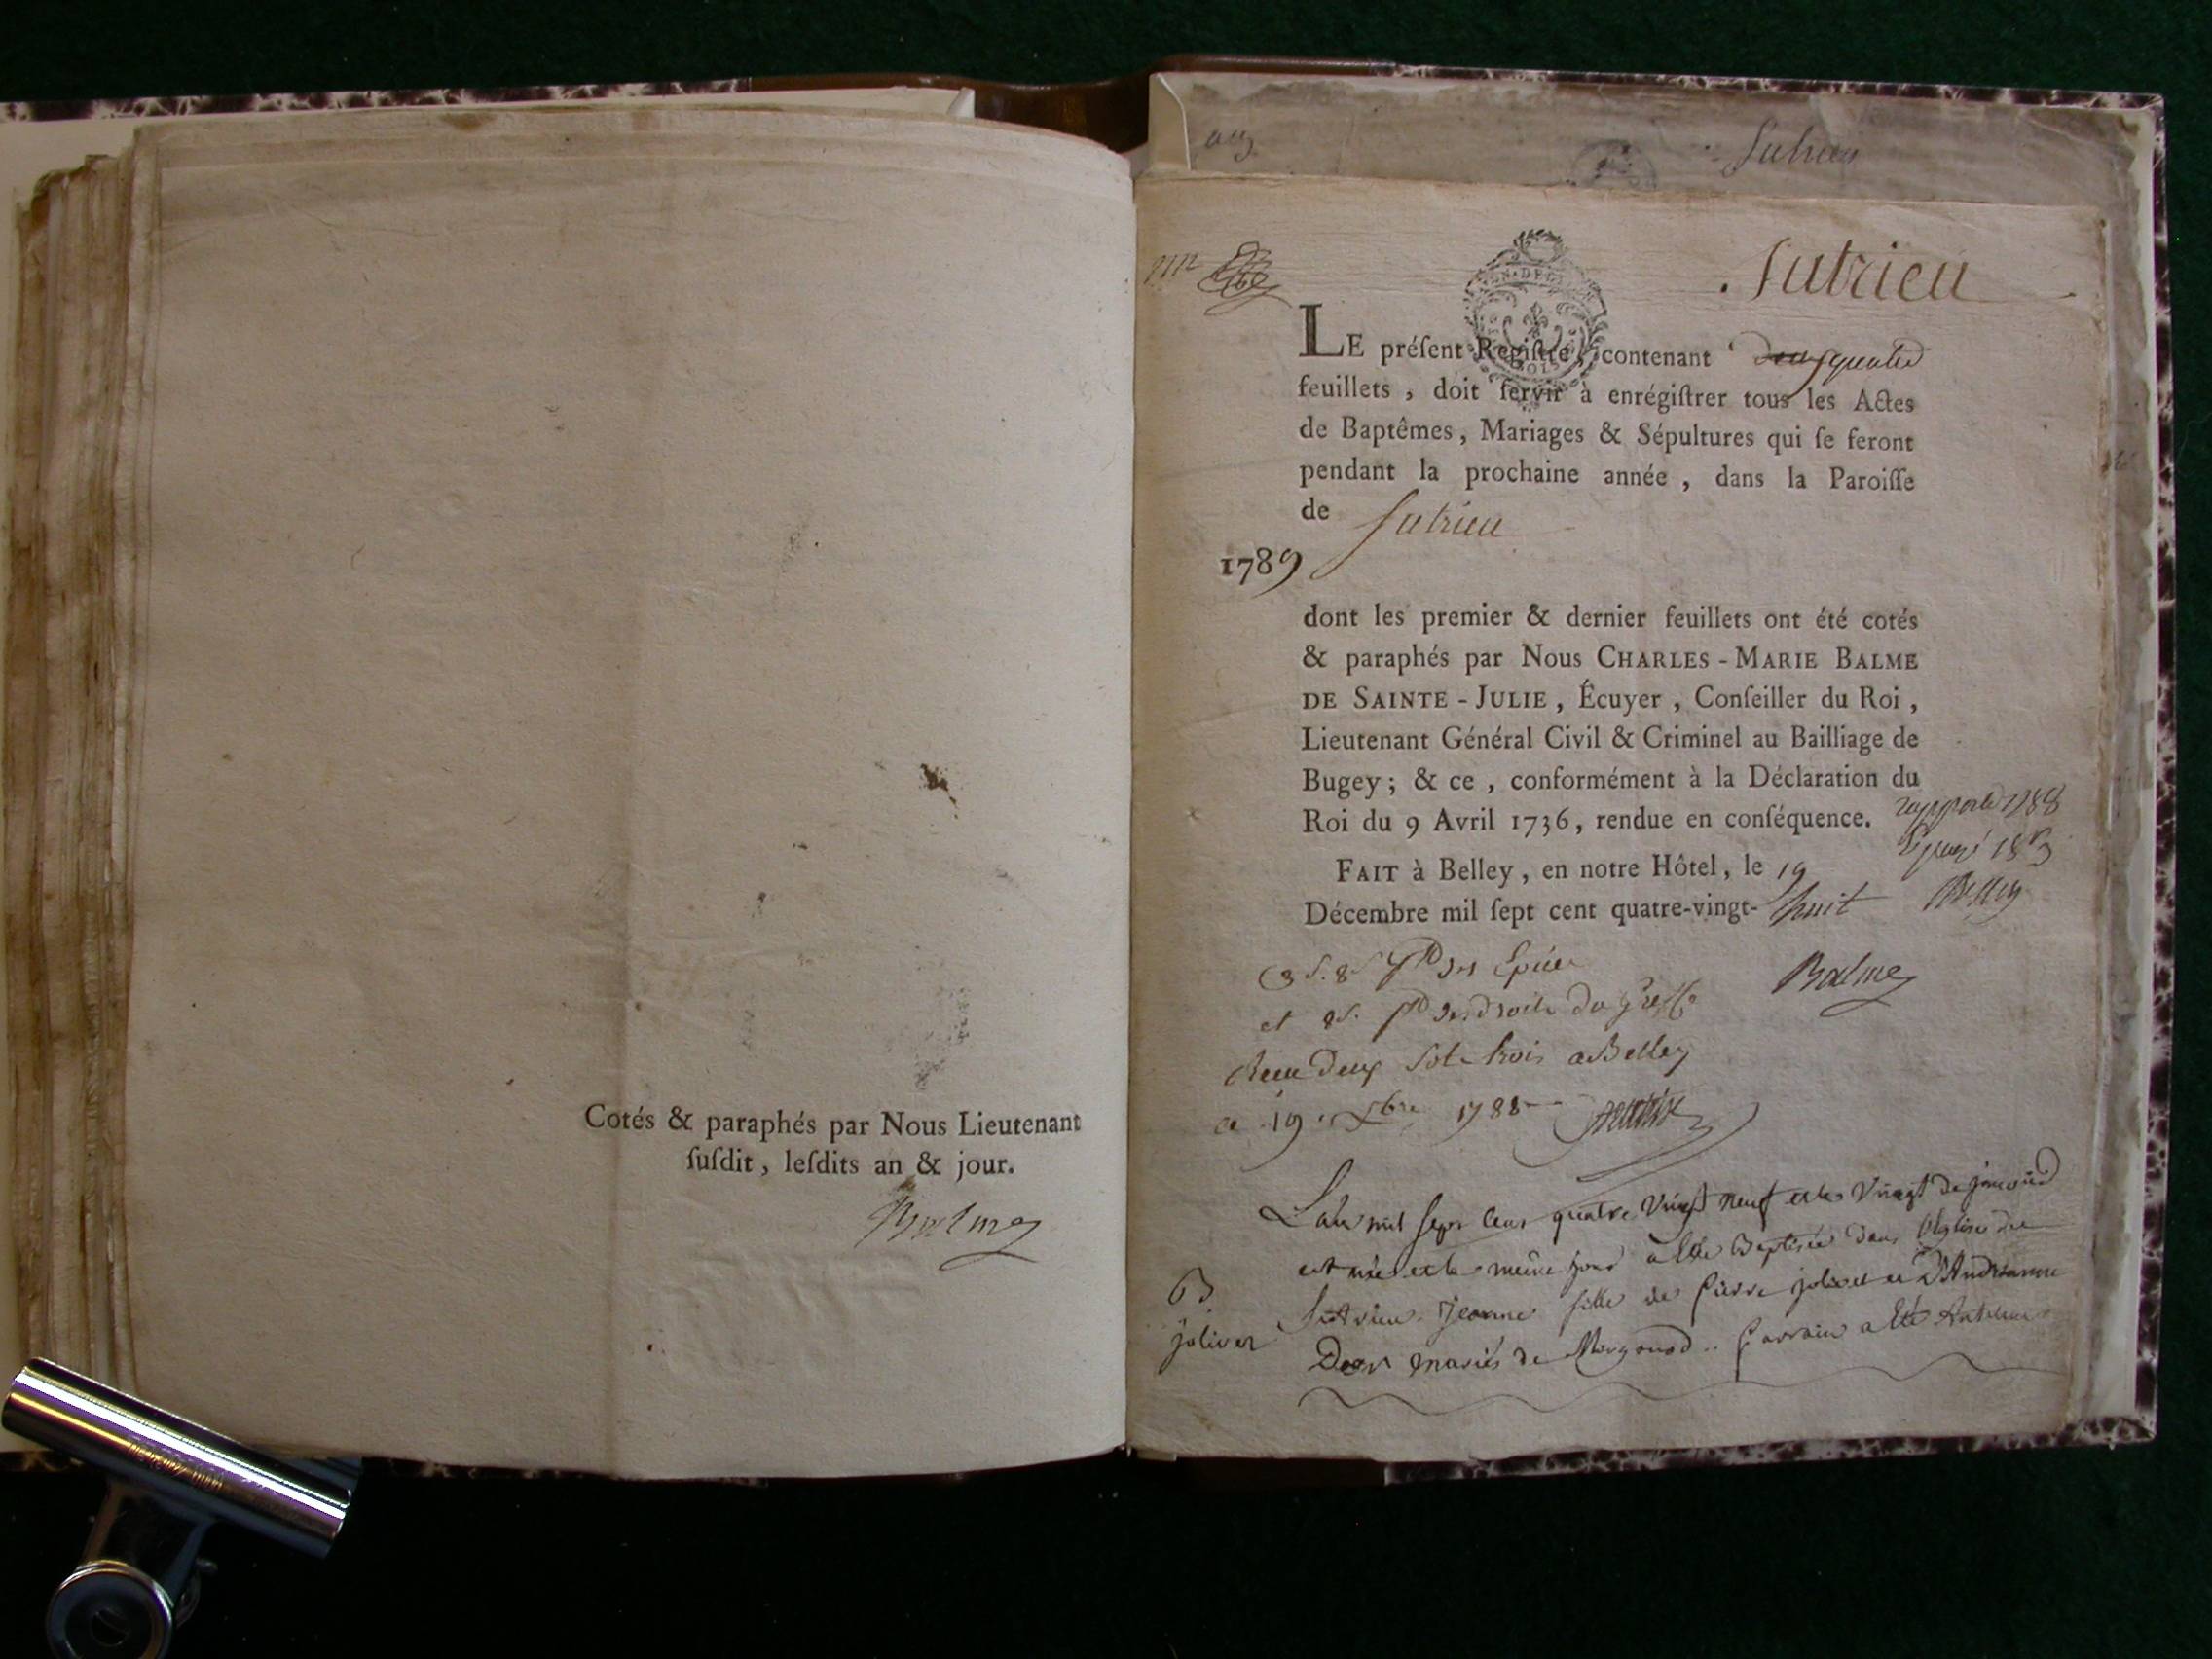 Cotés & paraphés par Nous Lieutenant
ſuſdit, leſdits an & jour.
Balme
Sutrieu
Sutrieu
LE préſent Regiſtre, contenant quatre
feuillets, doit ſervir à enrégiſtrer tous les Actes
de Baptêmes, Mariages & Sépultures qui ſe feront
pendant la prochaine année, dans la Paroiſſe
de Sutrieu
1789
dont les premier & dernier feuillets ont été cotés
& paraphés par Nous CHARLES-MARIE BALME
DE SAINTE-JULIE, Écuyer, Conſeiller du Roi,
Lieutenant Général Civil & Criminel au Bailliage de
Bugey; & ce, conformément à la Déclaration du
Roi du 9 Avril 1736, rendue en conſéquence.
rapporté 1788
FAIT à Belley, en notre Hôtel, le 19
Décembre mil ſept cent quatre-vingt-huit
Balme
et des droits du Greffe
Receu deux sols trois a Belley
ce 19 xbre 1788
L'an mil sept cent quatre vingt neuf et le vingt de janvier
est née et le meme jour a été Baptisée dans l'églises de
Sutrieu jeanne fille de Pierre jolivet et D'Andréanne
mariés de .. Parrain a été Antelme
B
jolivet